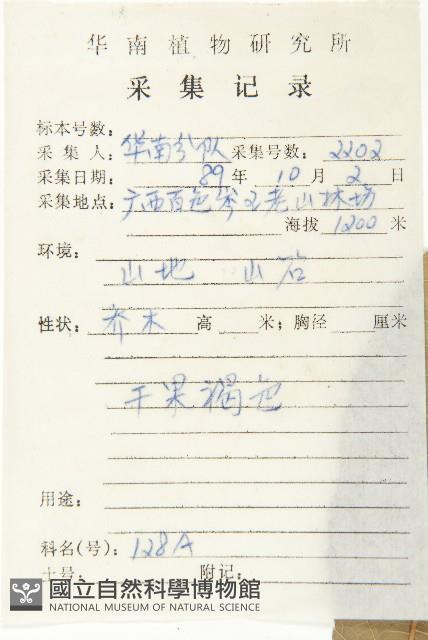 华南植物研究所
采集记录
标本号数：
采集人：华南分队 采集号数：2202
采集日期：89年10月2日
采集地点：广西百色岑王老山林场
海拔 1200 米
环境：
山地 山谷
性状：乔木 高 米；胸径 厘米
干果褐色
用途：
科名(号)：128A
土号： 附记：
國立自然科學博物館
NATIONAL MUSEUM OF NATURAL SCIENCE